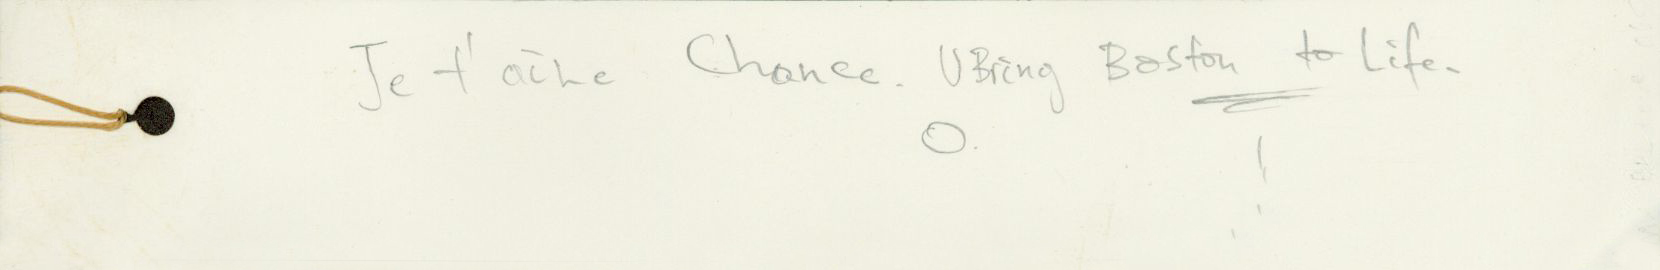 Je t'aime Chance. U Bring Boston to Life.
O. !